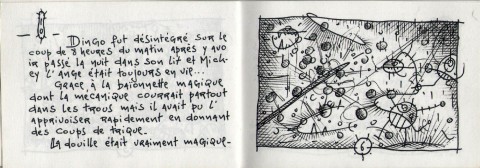 Dingo fut désintégré sur le
coup de 8 heures du matin après y avo
ir passé la nuit dans son lit et Mick-
ey l'ange était toujours en vie...
Grace à la baïonnette magique
dont la mécanique courrait partout
dans les trous mais il avait pu l'
apprivoiser rapidement en donnant
des coups de trique.
La douille était vraiment magique-